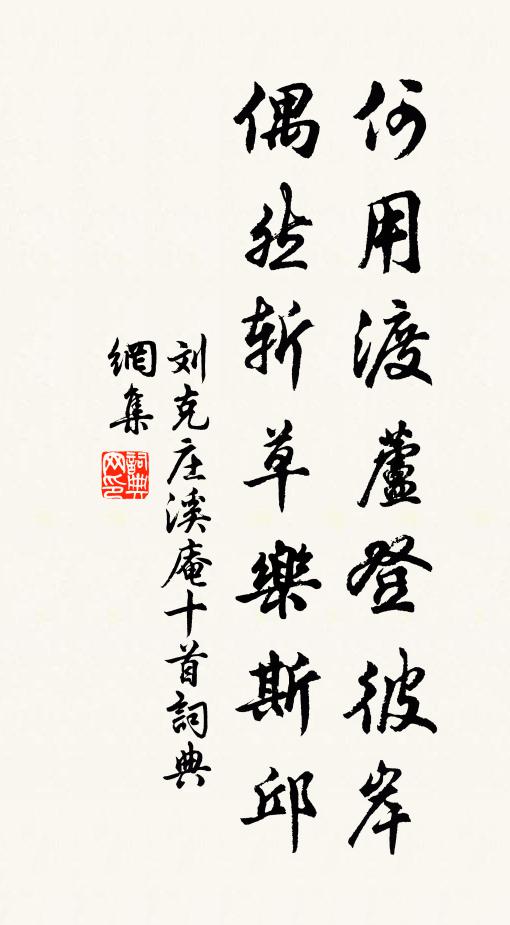 何用渡蘆登彼岸
偶然斬草樂斯邱
刘克庄溪庵十首詞典
網集
詞典
网印